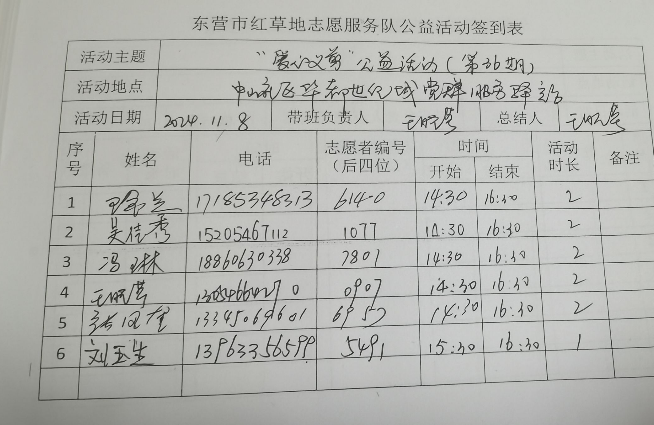 东营市红草地志愿服务队公益活动签到表
活动主题 “爱心义剪”公益活动(第36期)
活动地点 世纪城党群服务驿站
活动日期 2024.11.8 带班负责人 王晓营 总结人 王晓营
序号 姓名 电话 志愿者编号(后四位) 时间 开始 结束 活动时长 备注
1 17185348313 6140 14:30 16:30 2
2 吴佳秀 15205467112 1077 14:30 16:30 2
3 冯琳 18860630338 7801 14:30 16:30 2
4 王晓营 0907 14:30 16:30 2
5 13345069601 6957 14:30 16:30 2
6 刘玉生 13963356599 5491 15:30 16:30 1